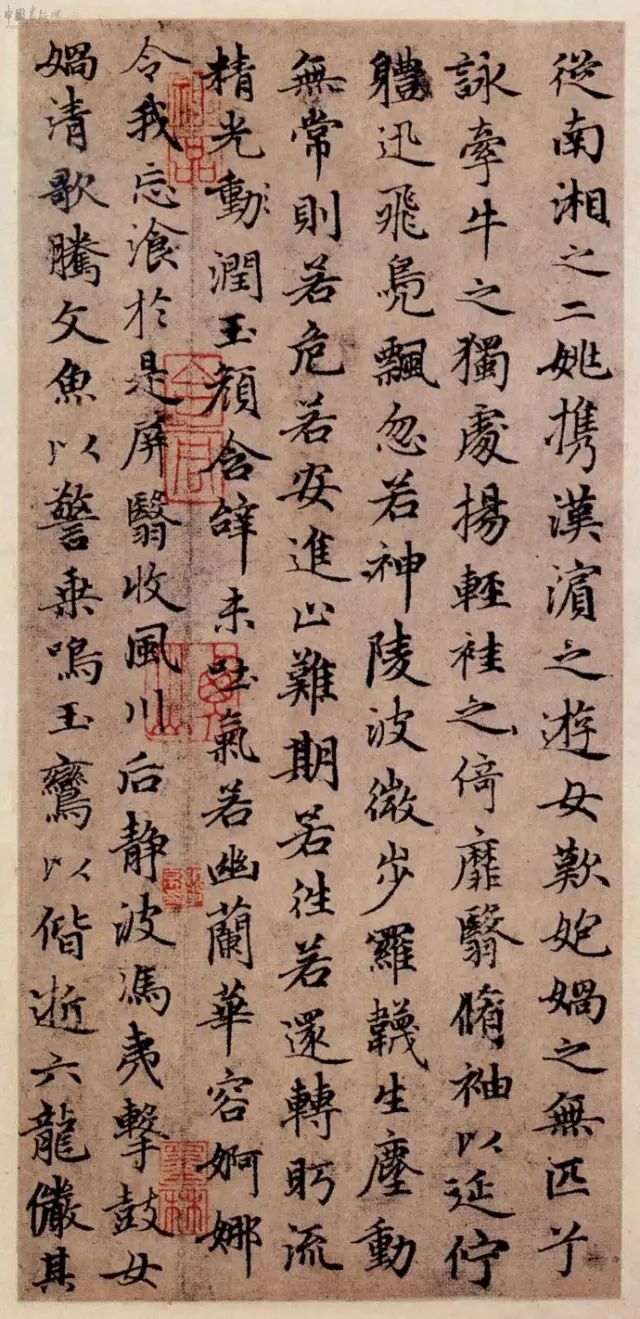 從南湘之二姚携漢濵之遊女歎妑媧之無匹兮
詠牽牛之獨處揚輕袿之倚靡翳脩袖以延佇
軆迅飛鳧飄忽若神陵波微步羅韈生塵動
無常則若危若安進止難期若往若還轉眄流
精光動潤玉顔含辝未吐氣若幽蘭華容婀娜
令我忘飡於是屏翳收風川后静波馮夷擊鼓女
媧清歌騰文魚以警乗鳴玉鸞以偕逝六龍儼其
神品
墨林